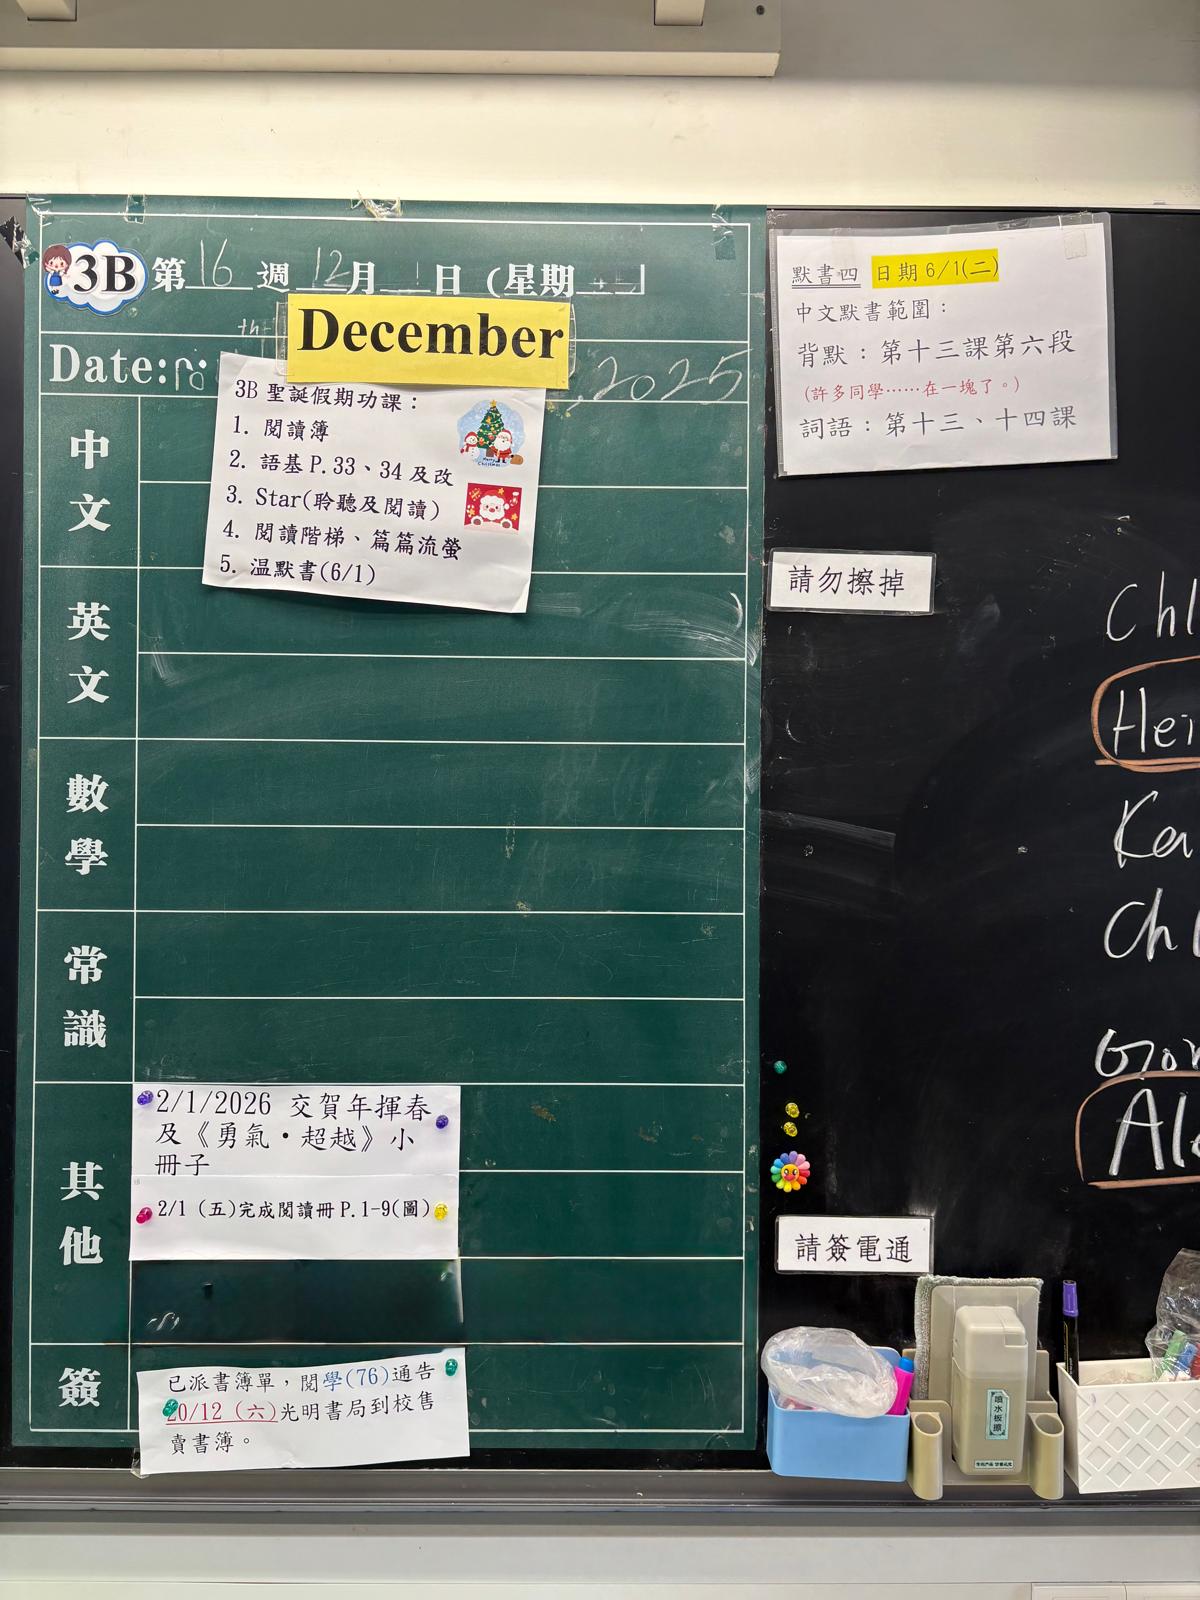 3B 第 16 週 12 月 日 (星期
December
Date: , 2025
3B 聖誕假期功課：
1. 閱讀簿
2. 語基 P.33、34 及改
3. Star(聆聽及閱讀)
4. 閱讀階梯、篇篇流螢
5. 温默書(6/1)
中文
英文
數學
常識
其他
2/1/2026 交賀年揮春
及《勇氣·超越》小
冊子
2/1 (五)完成閱讀冊 P.1-9(圖)
簽
已派書簿單，閱學(76)通告
20/12 (六)光明書局到校售
賣書簿。
默書四 日期 6/1(二)
中文默書範圍：
背默：第十三課第六段
(許多同學……在一塊了。)
詞語：第十三、十四課
請勿擦掉
Chl
Hei
Ka
Ch
Gon
Ale
請簽電通
噴水板擦